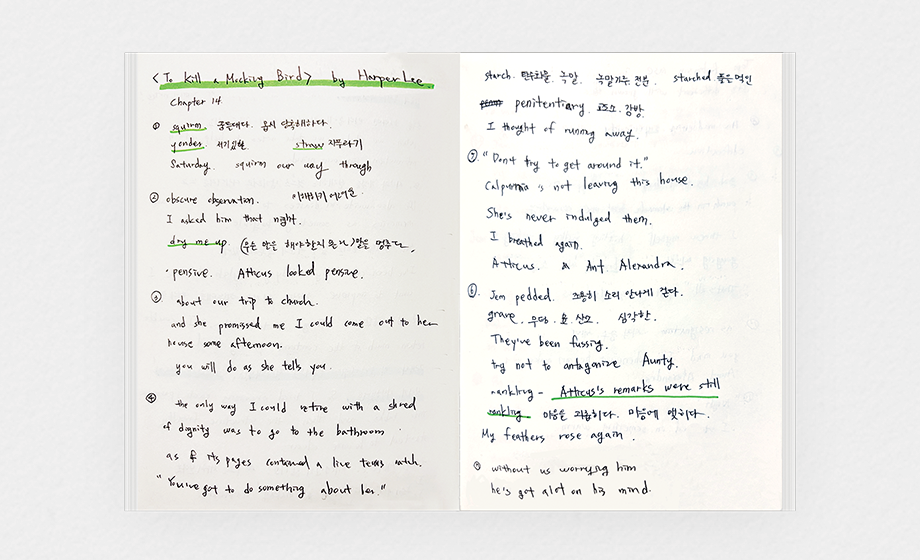 <To Kill a Mocking Bird> by Harper Lee
Chapter 14
① squirm 꿈틀대다. 몹시 당혹해하다.
yonder 저기있는 straw 지푸라기
Saturday. squirm our way through
② obscure observation. 이해하기 어려운
I asked him that night.
dry me up. (무슨 말을 해야할지 몰라) 말을 멈추다.
· pensive. Atticus looked pensive.
③ about our trip to church.
and she promised me I could come out to her
house some afternoon.
you will do as she tells you.
④ the only way I could retire with a shred
of dignity was to go to the bathroom
as if its pages contained a live
"You've got to do something about her."
starch. 탄수화물. 녹말. 녹말가루. 전분. starched 풀은 먹인
penitentiary. 교도소. 감방.
I thought of running away.
⑦ "Don't try to get around it."
Calpurnia is not leaving this house.
She's never indulged them.
I breathed again.
Atticus. & Ant Alexandra.
⑧ Jem pedded. 조용히 소리 안나게 걷다.
grave. 무덤. 묘. 산소. 심각한.
They've been fussing.
try not to antagonize Aunty.
rankling - Atticus's remarks were still
rankling. 마음을 괴롭히다. 마음에 맺히다.
My feathers rose again.
⑨ without us worrying him
he's got alot on his mind.